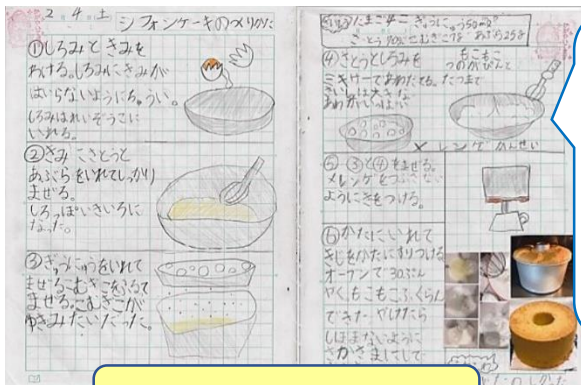 2 4 土
シフォンケーキのつくりかた
①しろみときみを
わける。しろみにきみが
はいらないようにちゅうい。
しろみはれいぞうこに
いれる。
②きみにさとうと
あぶらをいれてしっかり
まぜる。
しろっぽいきいろに
なった。
③ぎゅうにゅうをいれて
まぜる。こむぎこをふるって
まぜる。こむぎこが
ゆきみたいだった。
たまご4こ ぎゅうにゅう50ml
さとう 70g こむぎこ
④さとうとしろみを
ミキサーであわだてる。
もこもこ
つのがぴんと
たつまで
さいしょは大きな
あわがいっぱい
メレンゲ かんせい
⑤ ③と④をまぜる。
メレンゲをつぶさない
ようにきをつける。
⑥かたにいれて
きじをかたにすりつける
オーブンで30ぷん
やく。もこもこふくらん
できた。やけたら
しぼまないように
さかさまにして